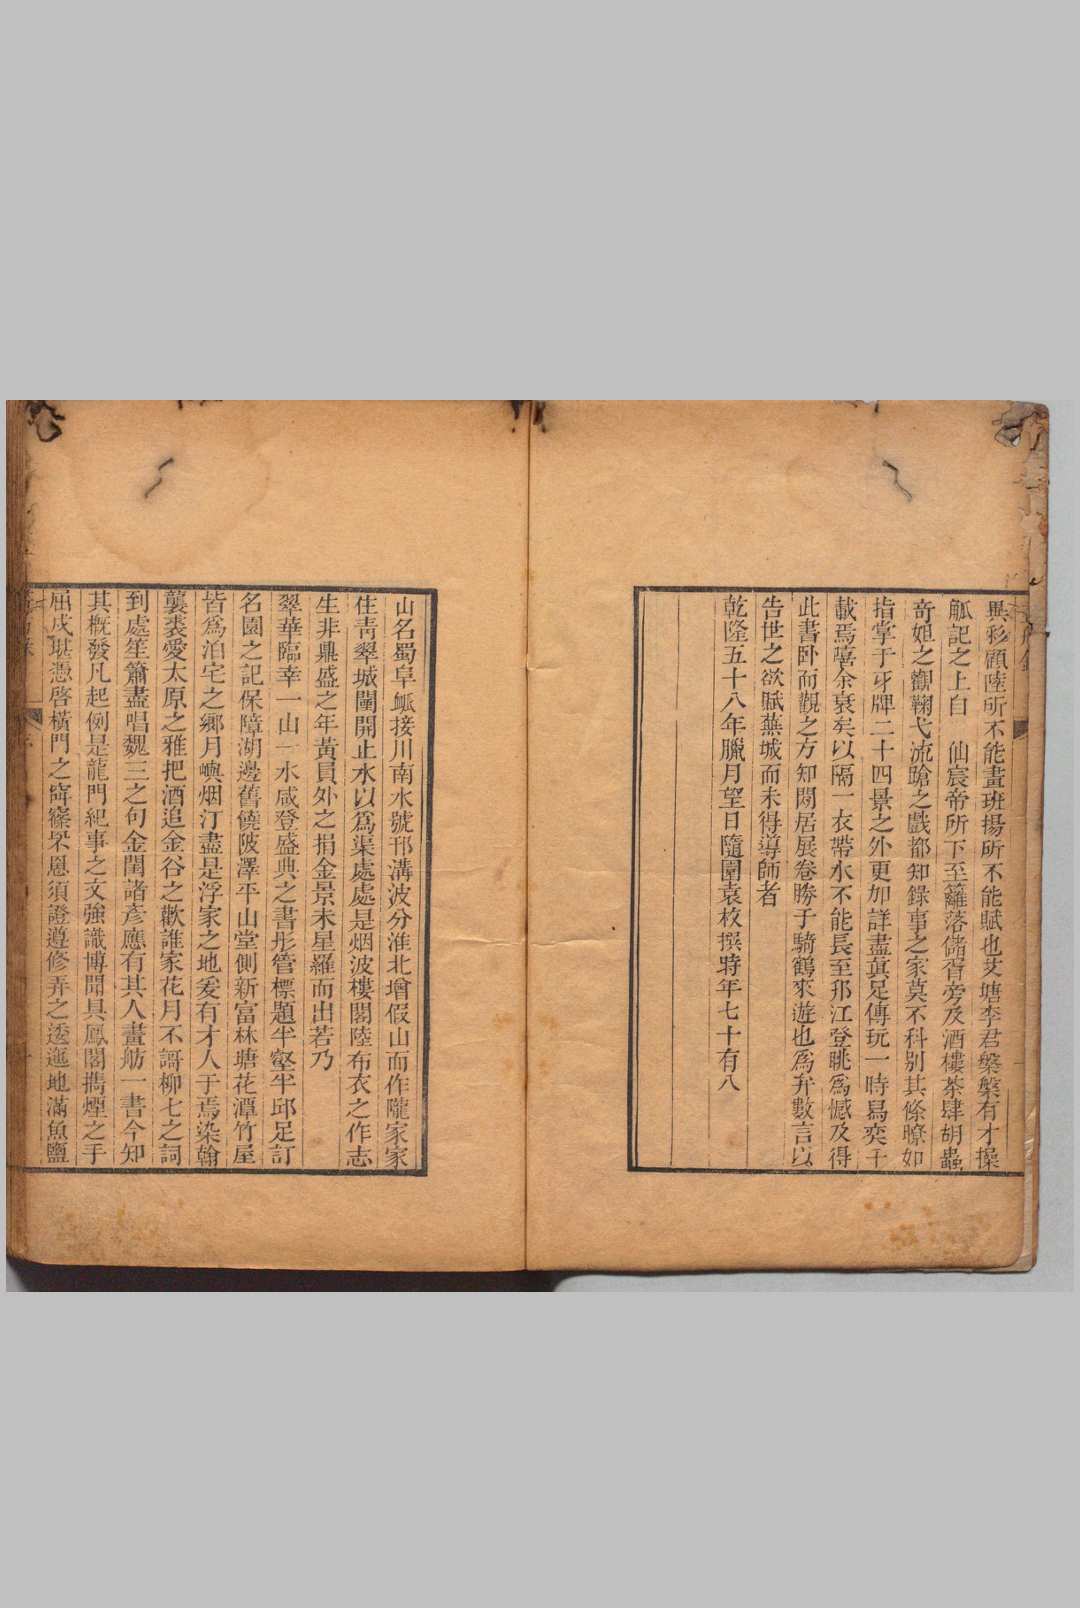 異彩顧陸所不能畫班揚所不能賦也艾塘李君槃槃有才操
觚記之上自　仙宸帝所下至籬落儲胥旁及酒樓茶肆胡蟲
奇妲之觀鞠弋流蹌之戲都知錄事之家莫不科别其條暸如
指掌于牙牌二十四景之外更加詳盡眞足傳玩一時舄奕千
載焉嘻余衰矣以隔一衣帶水不能長至邗江登眺爲憾及得
此書卧而觀之方知閑居展卷勝于騎鶴來遊也爲弁數言以
告世之欲賦蕪城而未得導師者
乾隆五十八年臘月望日隨園袁枚撰時年七十有八
山名蜀阜瓞接川南水號邗溝波分淮北增假山而作隴家家
住青翠城闉開止水以爲渠處處是烟波樓閣陸布衣之作志
生非鼎盛之年黃員外之捐金景未星羅而出若乃
翠華臨幸一山一水咸登盛典之書彤管標題半壑半邱足訂
名園之記保障湖邊舊饒陂澤平山堂側新富林塘花潭竹屋
皆爲泊宅之鄉月嶼烟汀盡是浮家之地爰有才人于焉染翰
襲裘愛太原之雅把酒追金谷之歡誰家花月不謌柳七之詞
到處笙簫盡唱魏三之句金閨諸彥應有其人畫舫一書今知
其概發凡起例是龍門紀事之文強識博聞具鳳閣攜煙之手
屈戍堪憑啓橫門之窲寮罘罳須證遵修弄之逶迤地滿魚鹽